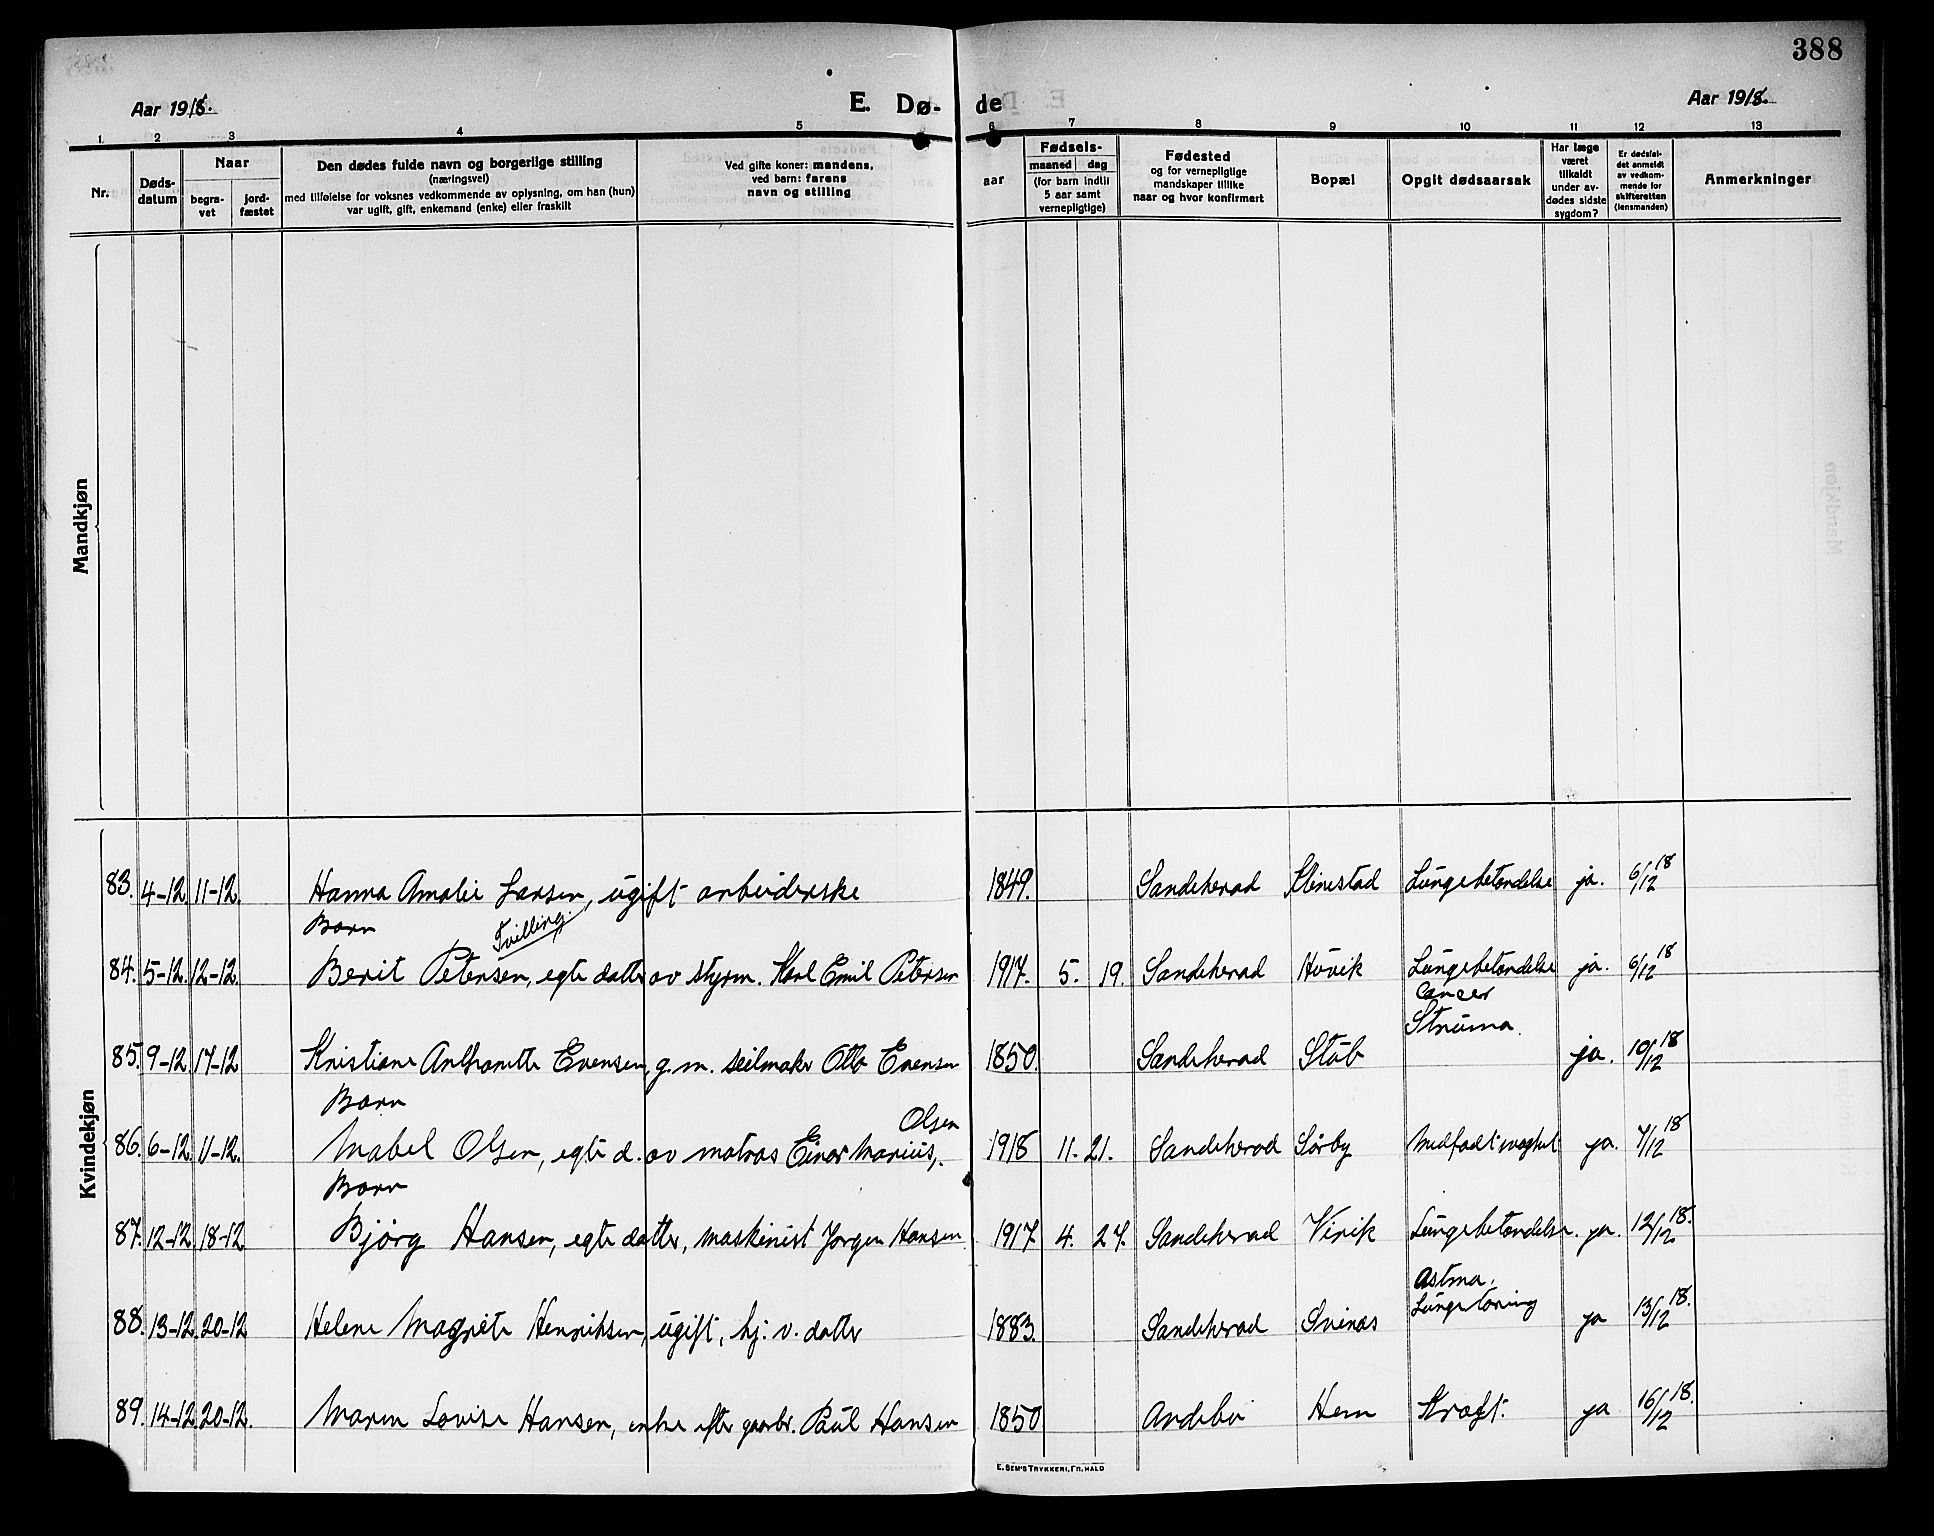 388
Aar 1918. E. Dø- de Aar 1918.
1. 2 3 4 5 6 7 8 9 10 11 12 13
Nr.
Døds-
datum
Naar
begra-
vet
jord-
fæstet
Den dødes fulde navn og borgerlige stilling
(næringsvei)
med tilføielse for voksnes vedkommende av oplysning, om han (hun)
var ugift, gift, enkemand (enke) eller fraskilt
Ved gifte koner: mandens,
ved barn: farens
navn og stilling
aar
Fødsels-
maaned dag
(for barn indtil
5 aar samt
vernepligtige)
Fødested
og for vernepligtige
mandskaper tillike
naar og hvor konfirmert
Bopæl
Opgit dødsaarsak
Har læge
været
tilkaldt
under av-
dødes sidste
sygdom?
Er dødsfal-
det anmeldt
av vedkom-
mende for
skifteretten
(lensmanden)
Anmerkninger
Mandkjøn
Kvindekjøn
83. 4-12. 11-12. Hanna Amalie Larsen, ugift arbeiderske 1849. Sandeherad Klinestad Lungebetændelse ja. 6/12 18
Barn
Tvilling.
84. 5-12. 12-12. Berit Petersen, egte datter av styrm. Karl Emil Petersen 1917. 5. 19. Sandeherad Huvik Lungebetændelse ja. 6/12 18
Cancer
Struma.
85. 9-12 17-12 Kristiane Anthonette Evensen, g. m. seilmaker Otto Evensen 1850. Sandeherad Stub ja. 10/12 18
Barn
Olsen
86. 6-12. 11-12. Mabel Olsen, egte d. av matros Einar Marius, 1918 11. 21. Sandeherad Sørby Medfødt svaghet ja. 7/12 18
Barn
87. 12-12. 18-12 Bjørg Hansen, egte datter, maskinist Jørgen Hansen 1917 4. 27. Sandeherad Virik Lungebetændelse. ja. 12/12 18.
Astma.
Lungetæring
88. 13-12. 20-12 Helene Magrete Henriksen, ugift, hj: v. datter 1883. Sandeherad Svines ja 13/12 18.
89. 14-12 20-12. Maren Lovise Hansen, enke efter gaarbr. Paul Hansen 1850 Andebu Hem Kræft. ja 16/12 18.
E. SEM'S TRYKKERI, FR.HALD